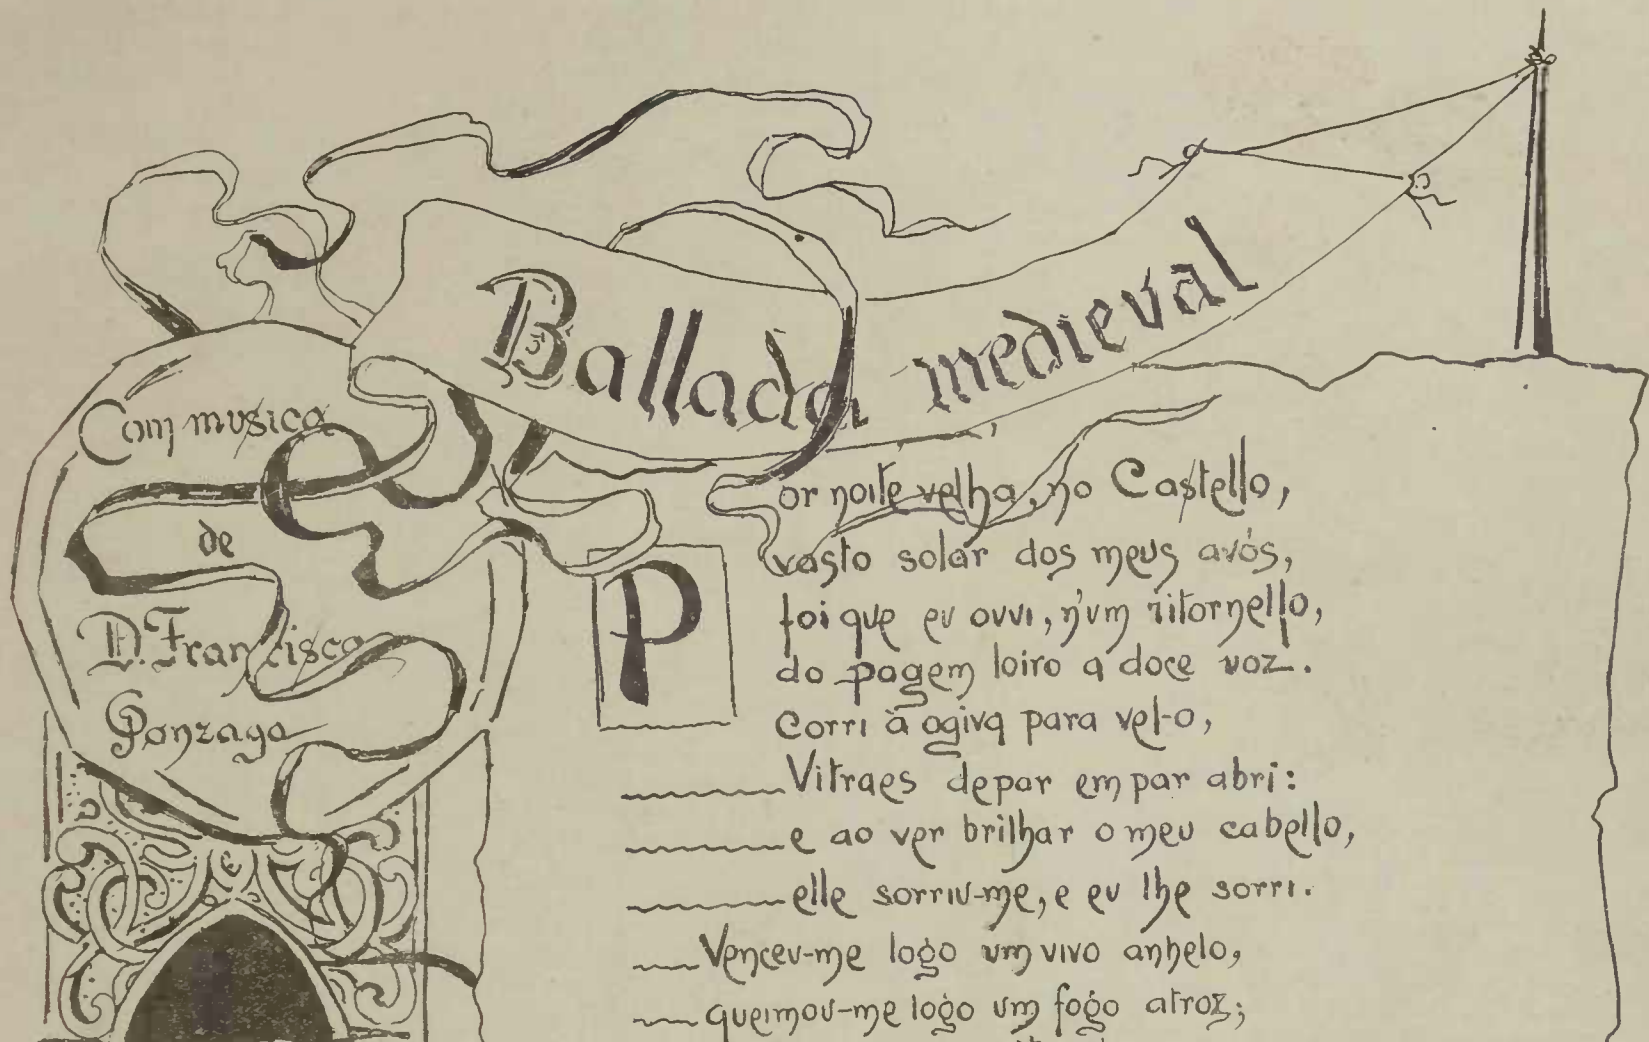 Ballada medieval
Com musica
de
D. Francisco
Gonzaga
Por noite velha, no Castello,
vasto solar dos meus avós,
foi que eu ouvi, n'um ritornello,
do pagem loiro a doce voz.
Corri à ogiva para vel-o,
Vitraes de par em par abri:
e ao ver brilhar o meu cabello,
elle sorriu-me, e eu lhe sorri.
Venceu-me logo um vivo anhelo,
queimou-me logo um fogo atroz;